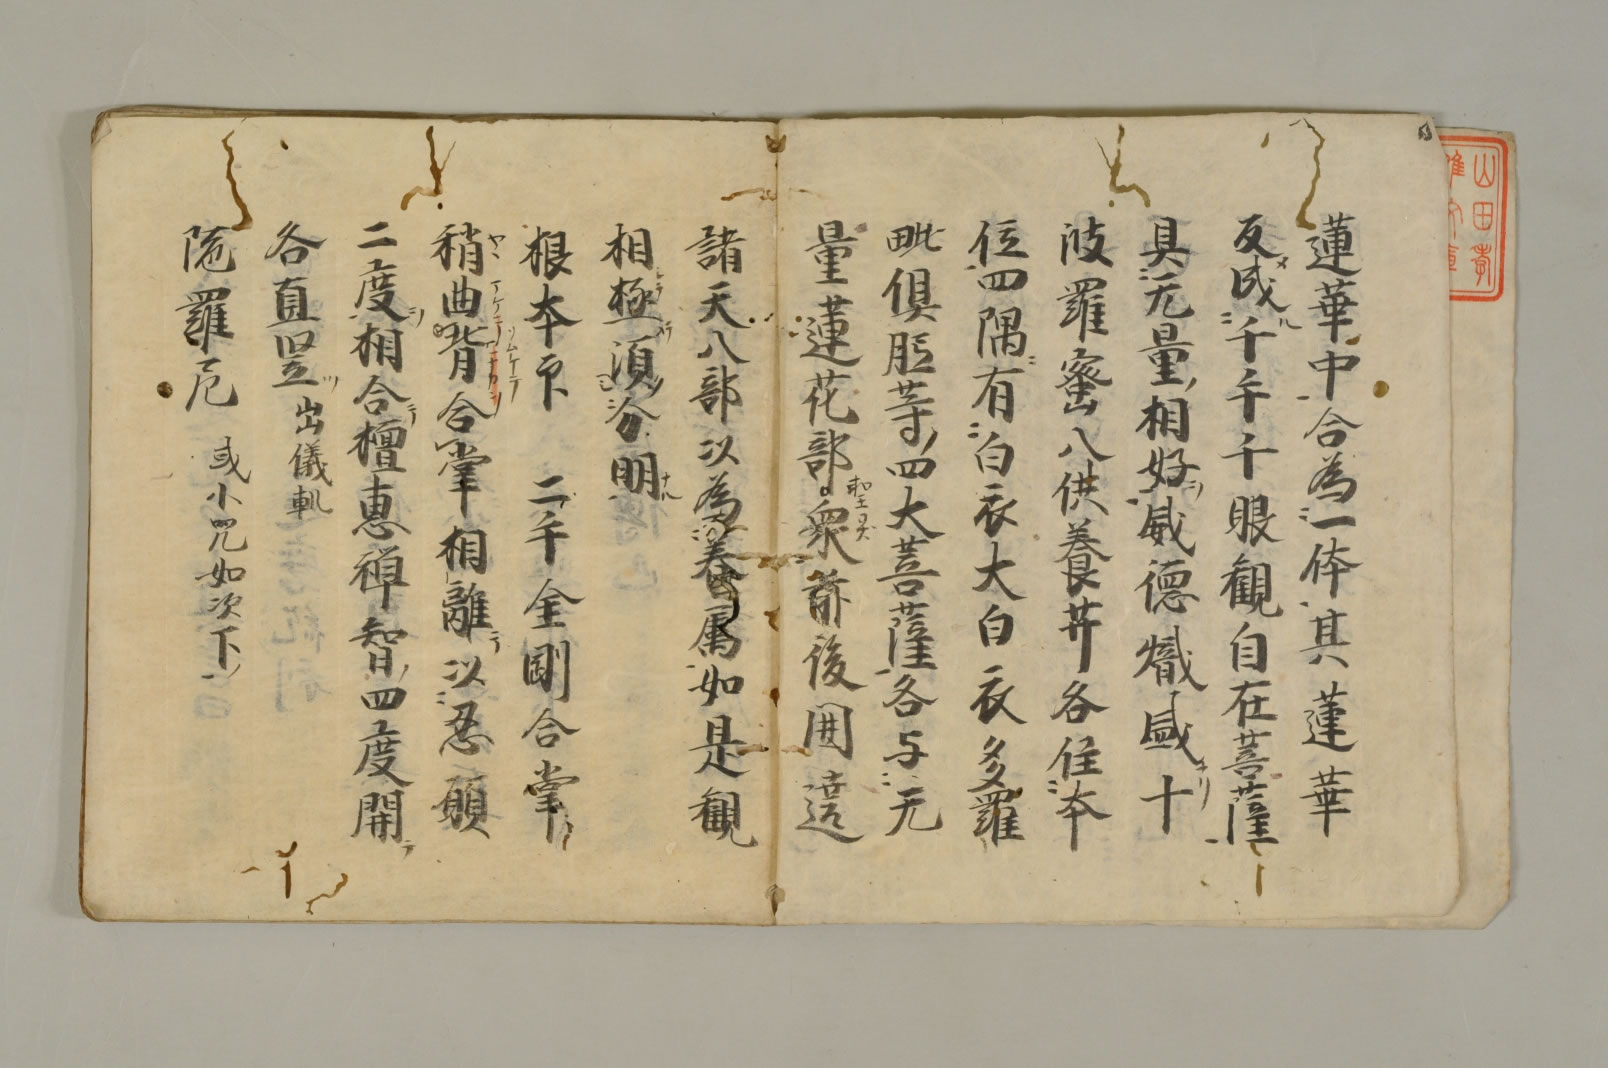 蓮華中合為一体其蓮華
反成千手千眼観自在菩薩
具无量相好威徳熾盛十
波羅蜜八供養井各住本
位四隅有白衣大白衣多羅
毗倶胝等四大菩薩各与无
量蓮花部衆前後囲遶
諸天八部以為眷属如是観
相極須分明
根本印 二手金剛合掌
稍曲背合掌相離以忍願
二度相合檀恵禅智四度開
各直竪 出儀軌
陁羅尼 或小咒如次下